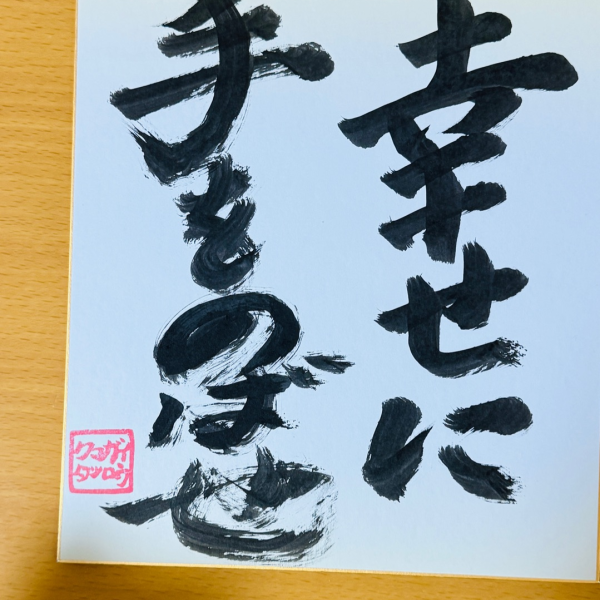 幸せに
手をのばせ
クマガイ
タツロウ